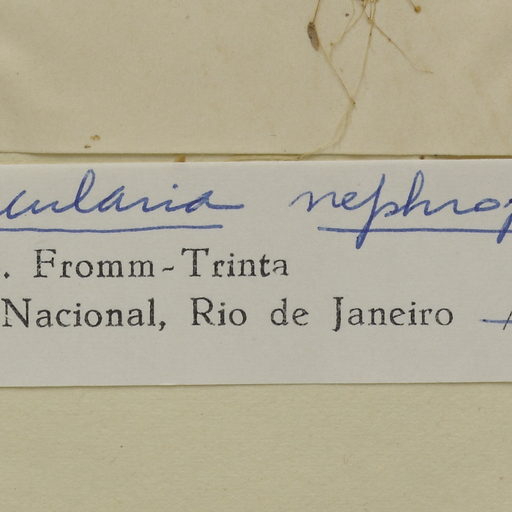 cularia nephrop
. Fromm-Trinta
Nacional, Rio de Janeiro